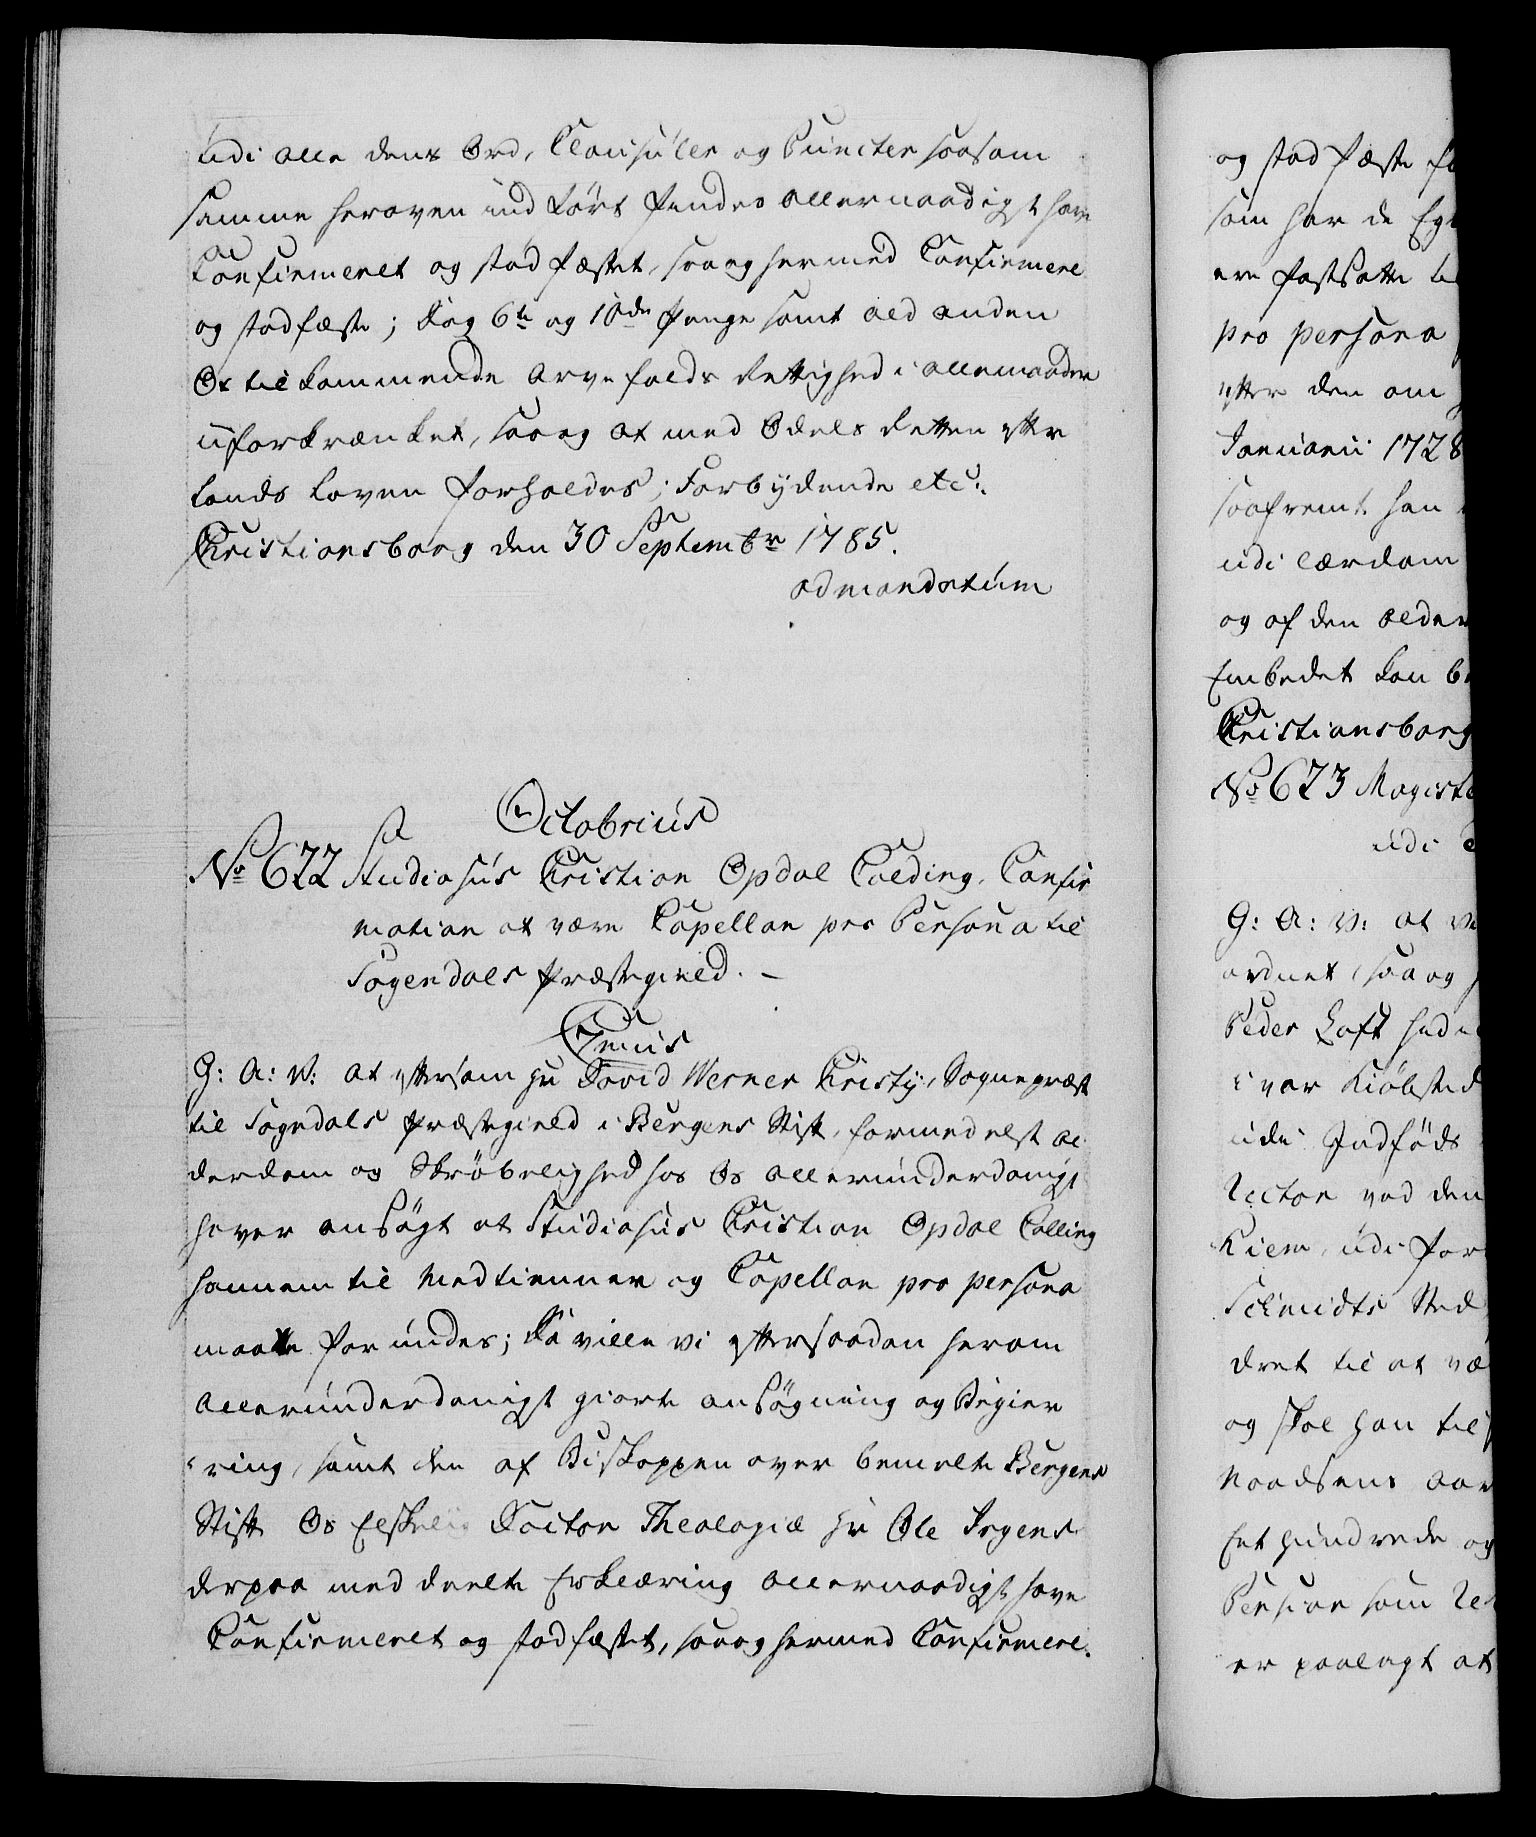 udi alle dens Ord, Clausuler og Puncter saasom
samme heroven indført findes allernaadigst have
Confirmeret og stadfæstet, saa og hermed Confirmere
og stadfæste; Dog 6te og 10de Penge samt all anden
Os tilkommende Arvefalds Rettighed i allemaader
uforkrænket, saa og at med Odels Retten efter
Lands Loven forholdes; Forbydende etc:.
Christiansborg den 30 Septembr 1785.
ad mandatum
Octobrius
No 622 Studiosus Christian Opdal Colding, Confir
mation at være Capellan pro Persona til
Sogendals Præstegield. –
Primus
G: A: V: at eftersom Hr David Werner Christy, Sognepræst
til Sogndals Præstegield i Bergens Stift, formedelst Al
derdom og Skrøbelighed hos Os allerunderdanigst
haver ansøgt at Studiosus Christian Opdal Colling
hannem til Medtienner og Capellan pro persona
maatte forundes; Da ville vi efter saadan herom
allerunderdanigst giorte ansøgning og Begiæ
ring, samt den af Biskoppen over bemelte Bergens
Stift Os Elskelig Doctor Theologiæ Hr Ole Irgens
derpaa meddeelte Erklæring allernaadigst have
Confirmeret og stadfæstet, saa og hermed Confirmere.
og stadfæste
som har de
ere fastsatte
pro persona
efter den om
Januarii 1728
saafremt han
udi Lærdom
og af den Alder
Embedet kan
Christiansborg
No 623
udi
G: A: V: at
ordnet, saa og
Peder Hoft
i vor Kiøbsted
udi Indføds
Rector ved den
Kiem, udi
Schmidts Sted
dret til at
og skal han
Naadsens Aar
Eet hundrede og
Pension som
er paalagt at